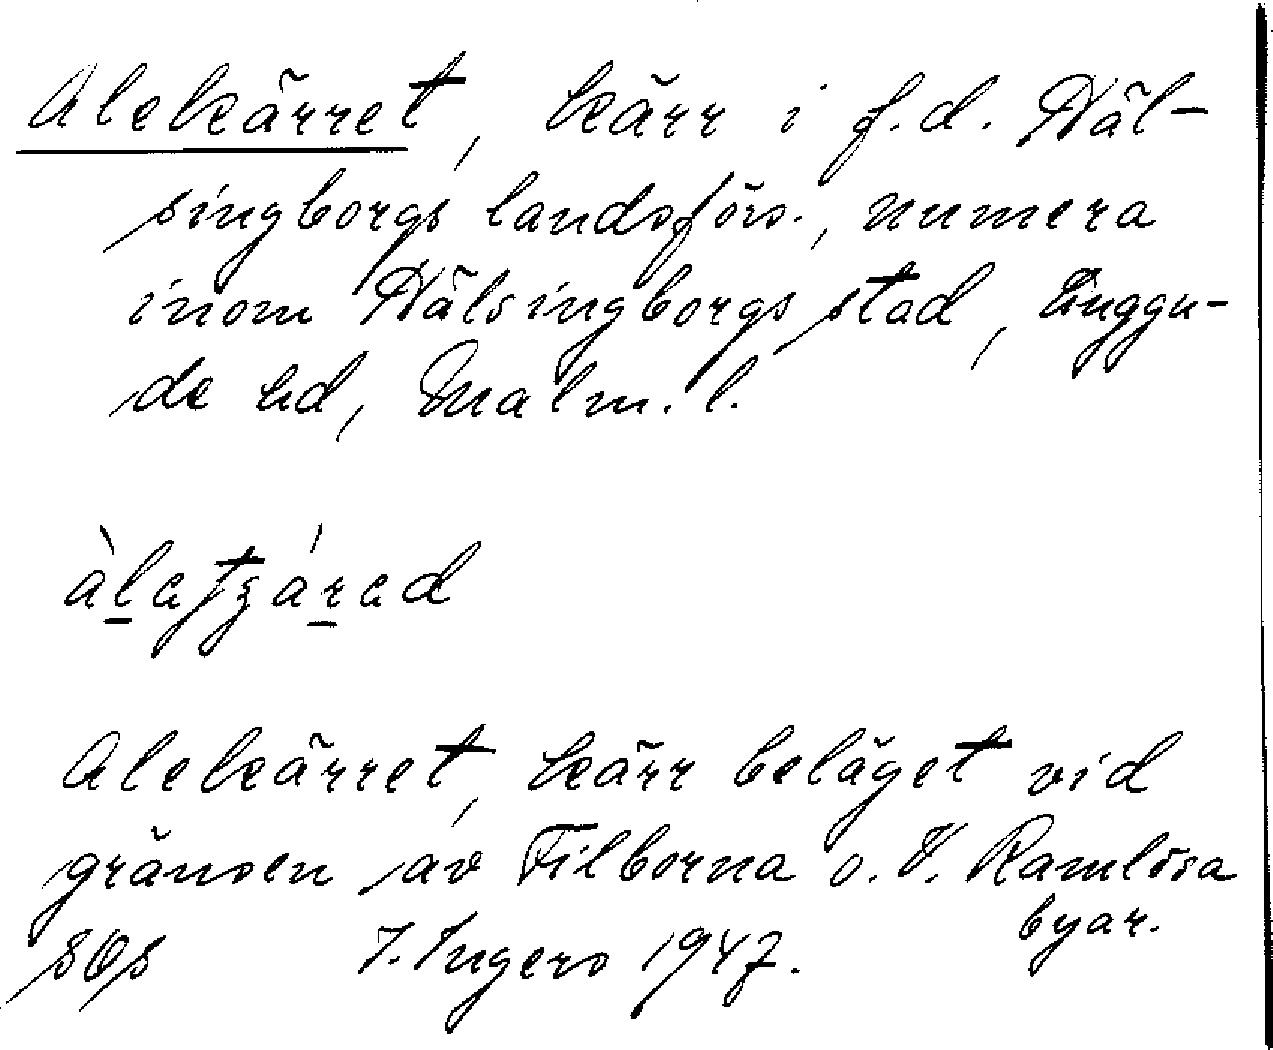 Alekärret, kärr i f.d. Häl-
singborgs landsförs., numera
inom Hälsingborgs stad, Luggu-
de hd, Malm. l.
Alekärret, kärr beläget vid
gränsen av Filborna o. V. Ramlösa
byar.
SOS I. Ingers 1947.